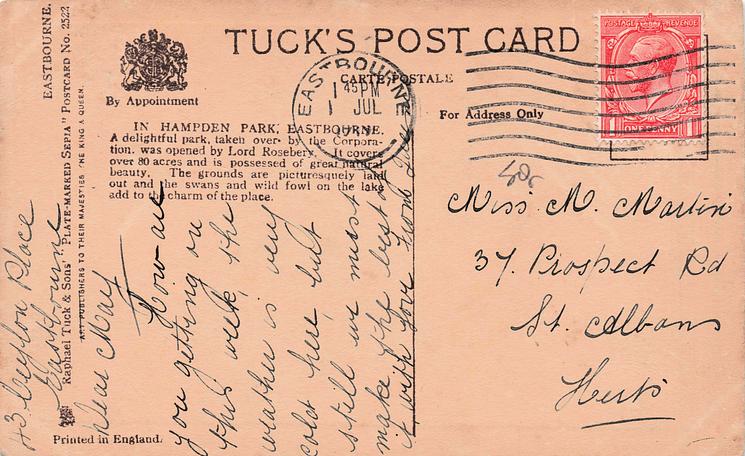 TUCK'S POST CARD
CARTE POSTALE
By Appointment
For Address Only
IN HAMPDEN PARK, EASTBOURNE.
A delightful park, taken over by the Corpora-
tion, was opened by Lord Rosebery. It covers
over 80 acres and is possessed of great natural
beauty. The grounds are picturesquely laid
out and the swans and wild fowl on the lake
add to the charm of the place.
EASTBOURNE.
Raphael Tuck & Sons' "PLATE-MARKED SEPIA" POSTCARD No. 2522
ART PUBLISHERS TO THEIR MAJESTIES THE KING & QUEEN.
Printed in England.
EASTBOURNE
1 45PM
1 JUL
POSTAGE REVENUE
1 ONE PENNY 1
Miss M. Martin
37. Prospect Rd
St. Albans
Herts
43 Place
Eastbourne
Dear May
How are
you getting on
this week, the
weather is very
cold here, but
still we must
make the best of
it with love from